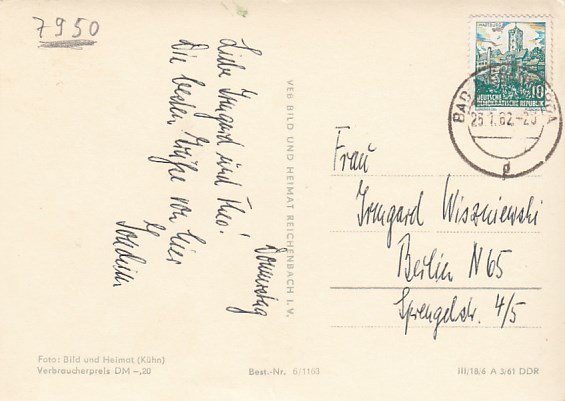 7950
Donnerstag
Liebe Irmgard und Theo!
Die besten Grüße von hier
VEB BILD UND HEIMAT REICHENBACH I. V.
DEUTSCHE
DEMOKRATISCHE REPUBLIK
10
BAD
25.1.62-20
Frau
Irmgard Wiszniewski
Berlin N65
Sprengelstr. 4/5
Foto: Bild und Heimat (Kühn)
Verbraucherpreis DM -,20
Best.-Nr. 6/1163
III/18/6 A 3/61 DDR